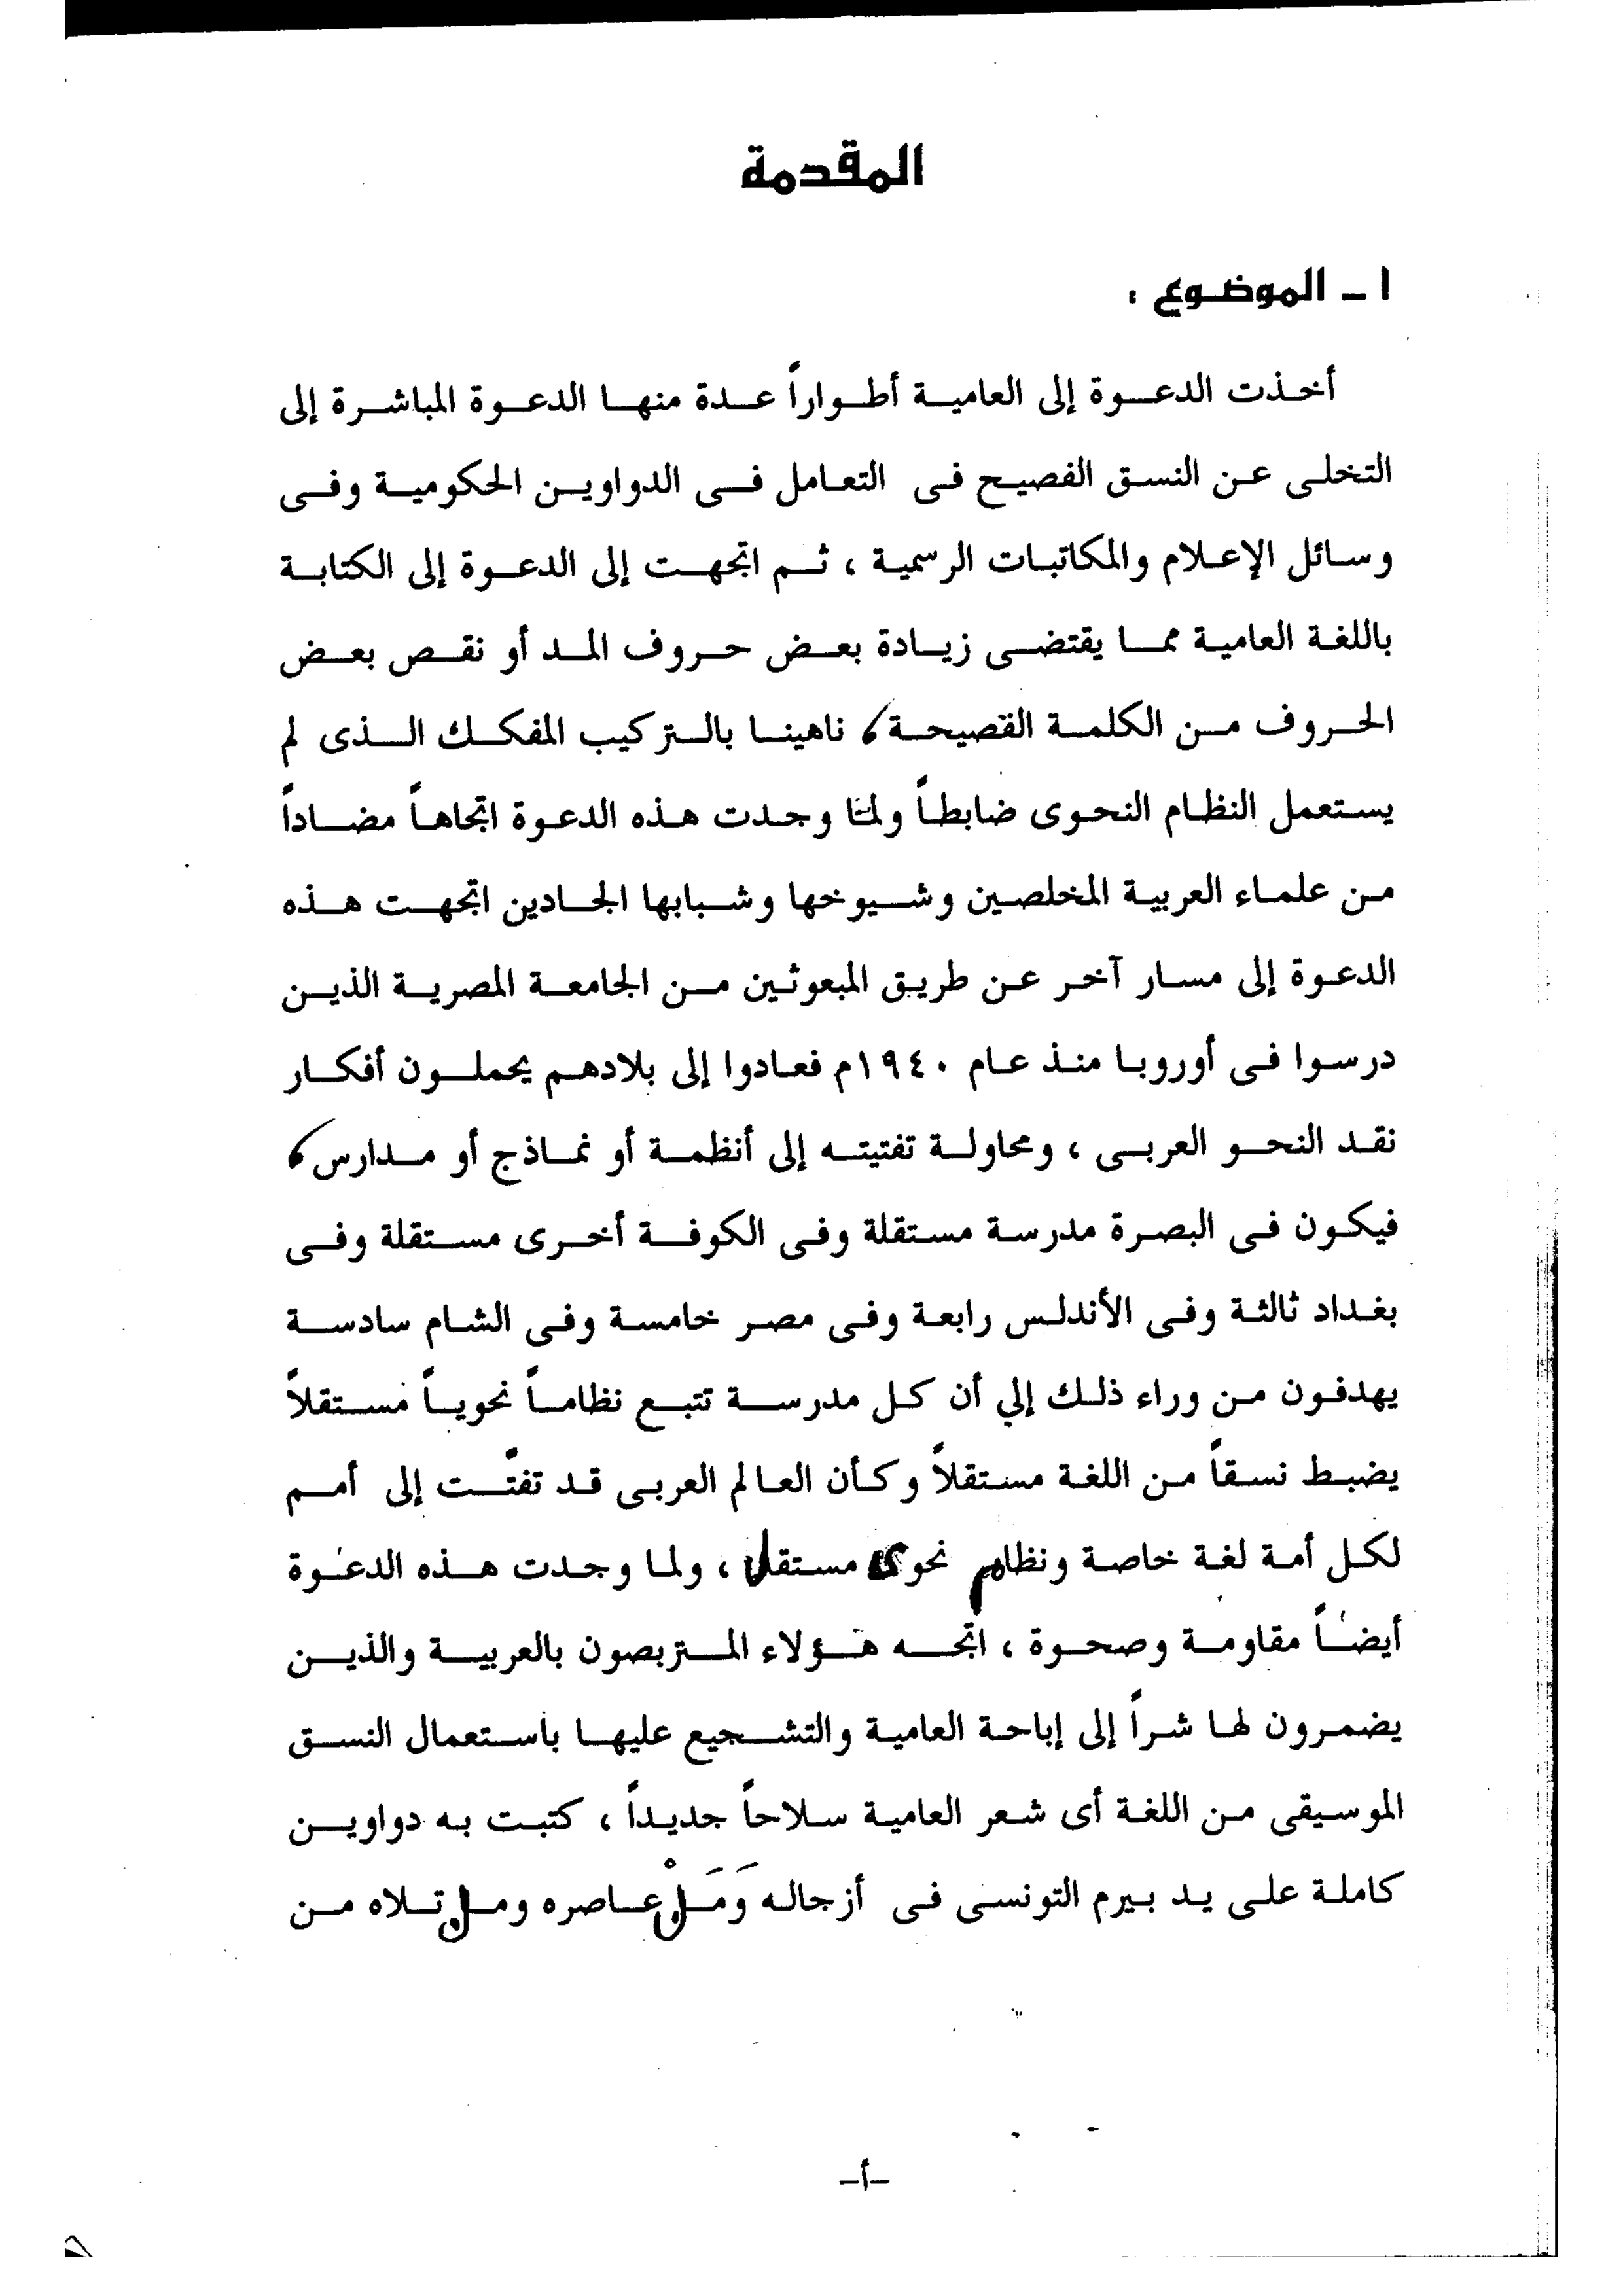 المقدمة
١ – الموضوع :
أخذت الدعوة إلى العامية أطواراً عدة منها الدعوة المباشرة إلى
التخلى عن النسق الفصيح فى التعامل فى الدواوين الحكومية وفى
وسائل الإعلام والمكاتبات الرسمية ، ثم اتجهت إلى الدعوة إلى الكتابة
باللغة العامية مما يقتضى زيادة بعض حروف المد أو نقص بعض
الحروف من الكلمة الفصيحة ، ناهينا بالتركيب المفكك الذى لم
يستعمل النظام النحوى ضابطاً ولمّا وجدت هذه الدعوة اتجاهاً مضاداً
من علماء العربية المخلصين وشيوخها وشبابها الجادين اتجهت هذه
الدعوة إلى مسار آخر عن طريق المبعوثين من الجامعة المصرية الذين
درسوا فى أوروبا منذ عام ١٩٤٠م فعادوا إلى بلادهم يحملون أفكار
نقد النحو العربى ، ومحاولة تفتيته إلى أنظمة أو نماذج أو مدارس ،
فيكون فى البصرة مدرسة مستقلة وفى الكوفة أخرى مستقلة وفى
بغداد ثالثة وفى الأندلس رابعة وفى مصر خامسة وفى الشام سادسة
يهدفون من وراء ذلك إلي أن كل مدرسة تتبع نظاماً نحوياً مستقلاً
يضبط نسقاً من اللغة مستقلاً وكأن العالم العربى قد تفتّت إلى أمم
لكل أمة لغة خاصة ونظام نحوى مستقل ، ولما وجدت هذه الدعوة
أيضاً مقاومة وصحوة ، اتجه هؤلاء المتربصون بالعربية والذين
يضمرون لها شراً إلى إباحة العامية والتشجيع عليها باستعمال النسق
الموسيقى من اللغة أى شعر العامية سلاحاً جديداً ، كتبت به دواوين
كاملة على يد بيرم التونسى فى أزجاله وَمَنْ عاصره ومن تلاه من
–أ–